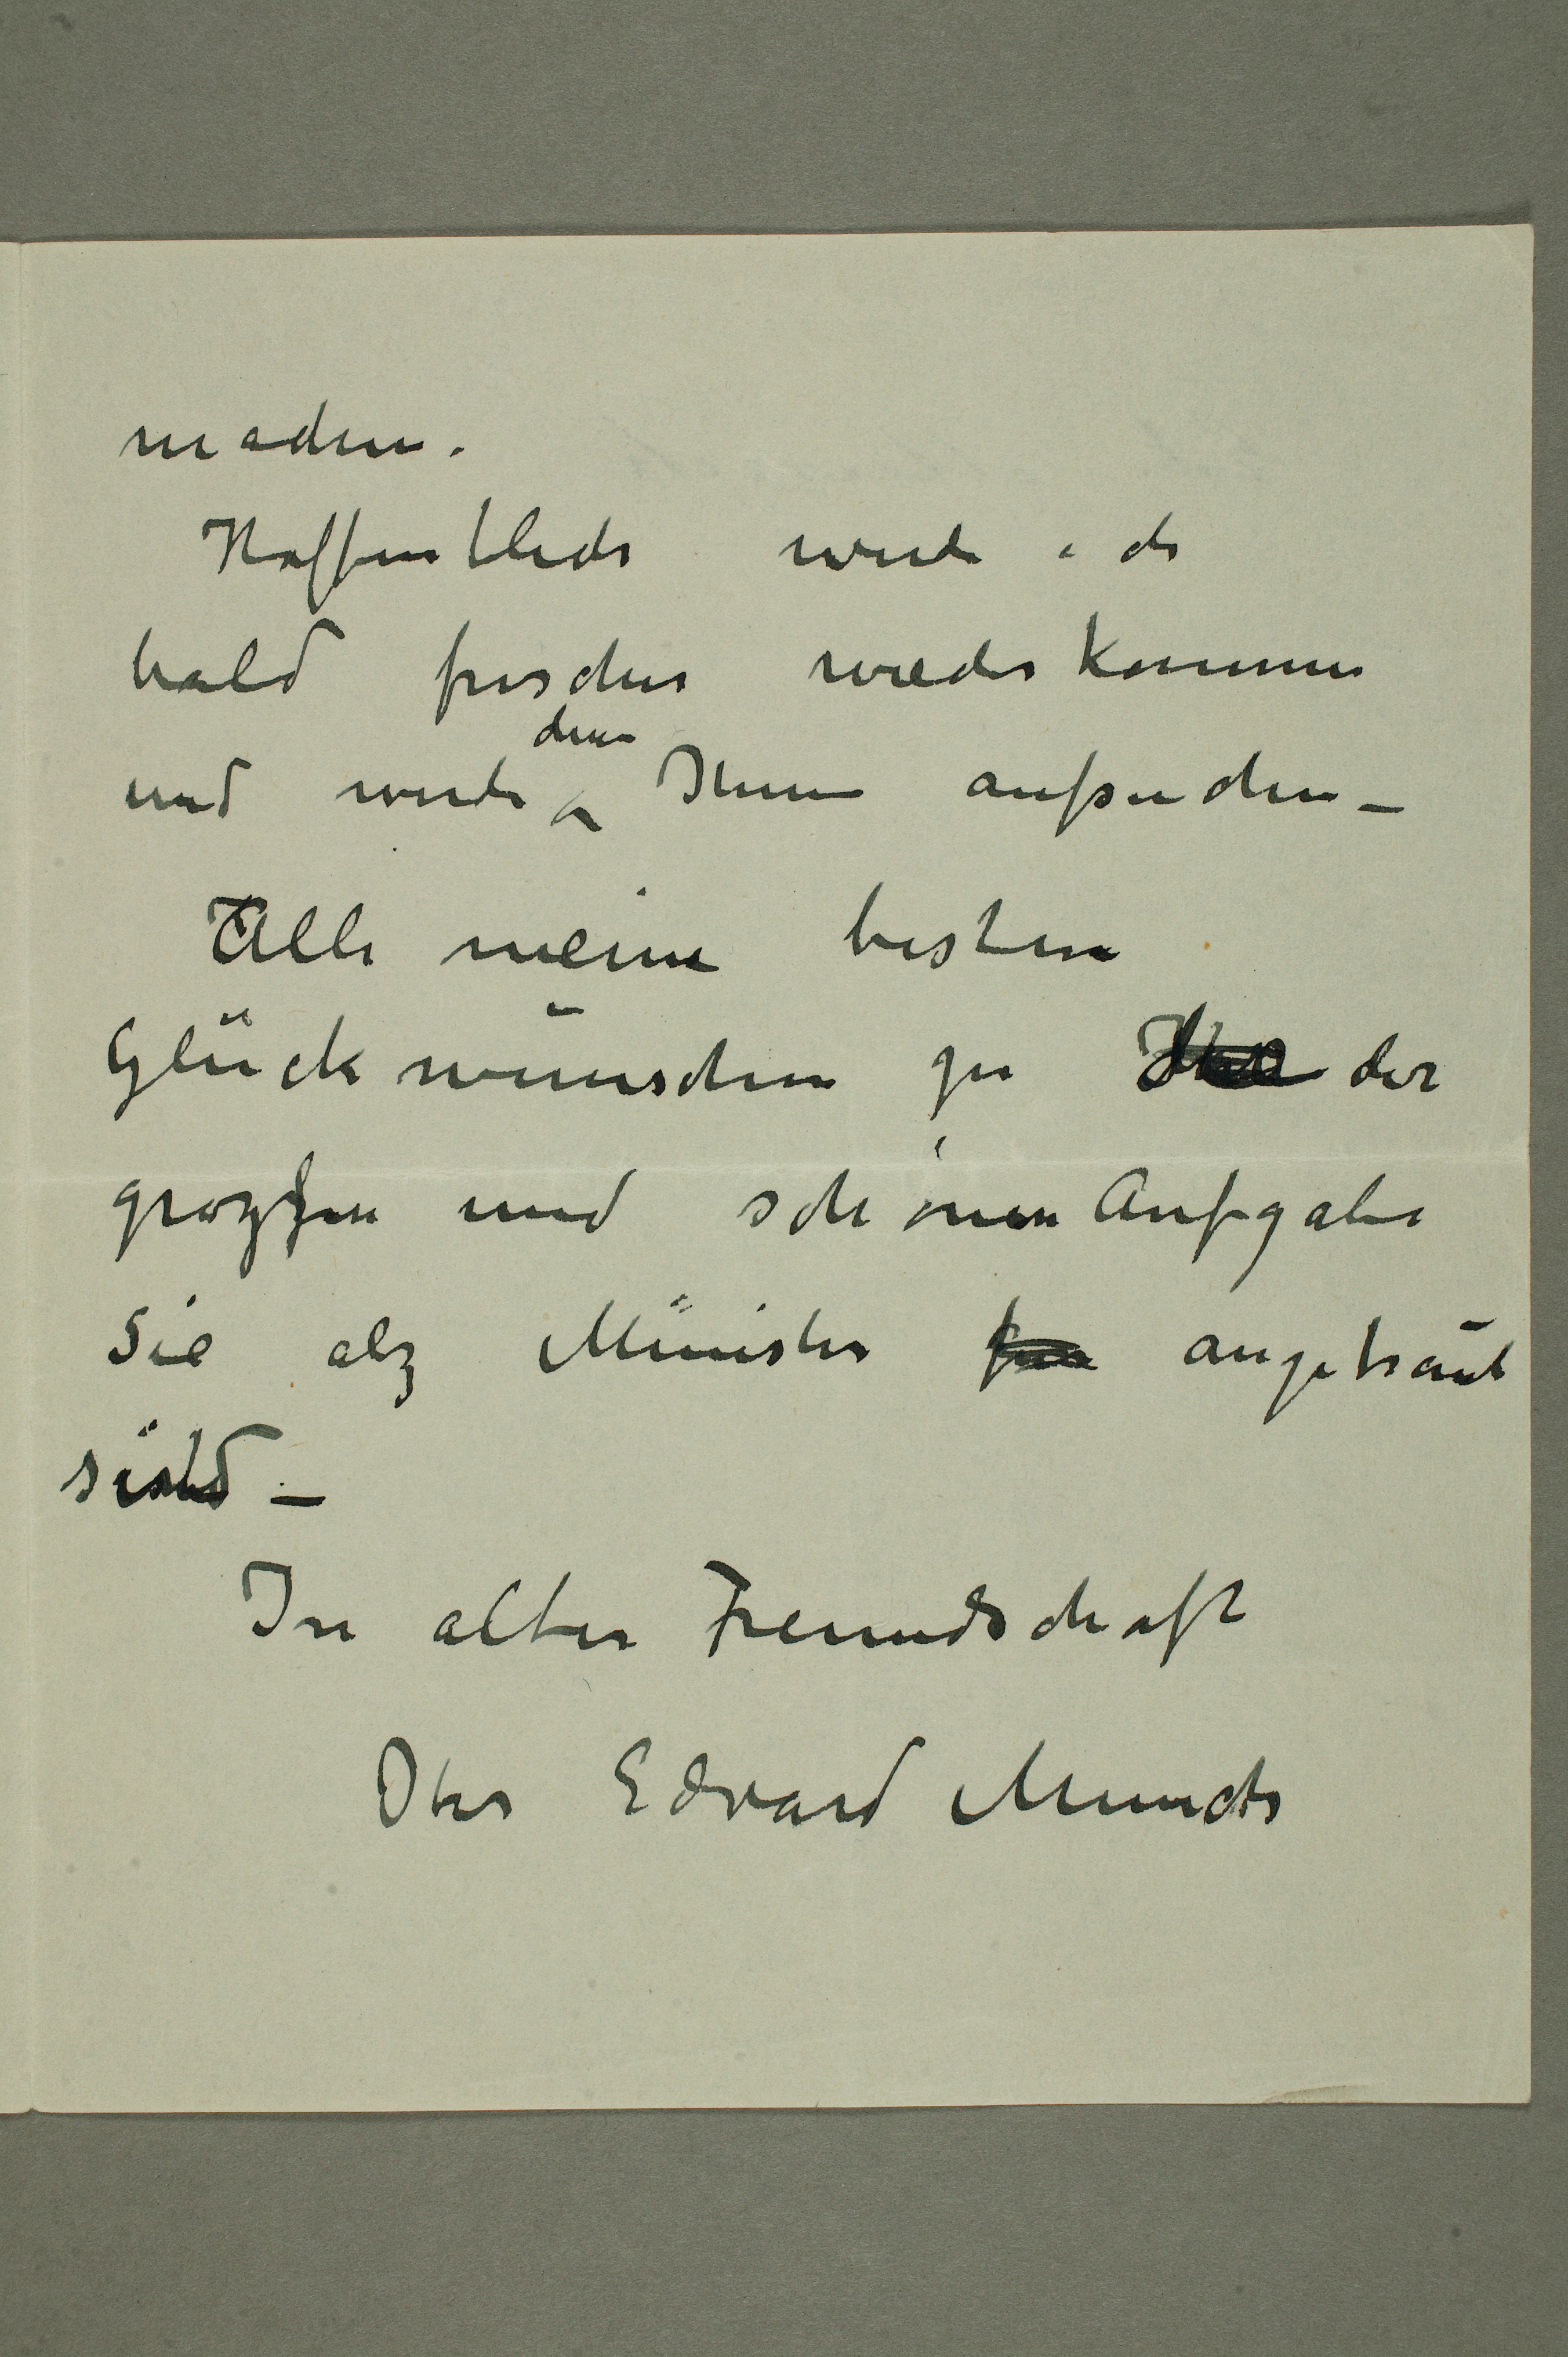 machen.
Hoffentlich werde ich
bald frischer wiederkommen
und werde dann Ihnen aufsuchen –
Alle meine besten
Glückwünschen zu der
grozzen und schönen Aufgabe
Sie alz Minister angetraut
sind –
In alter Freundschaft
Ihr Edvard Munch